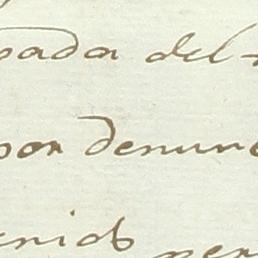 pada del
por denun
enios per